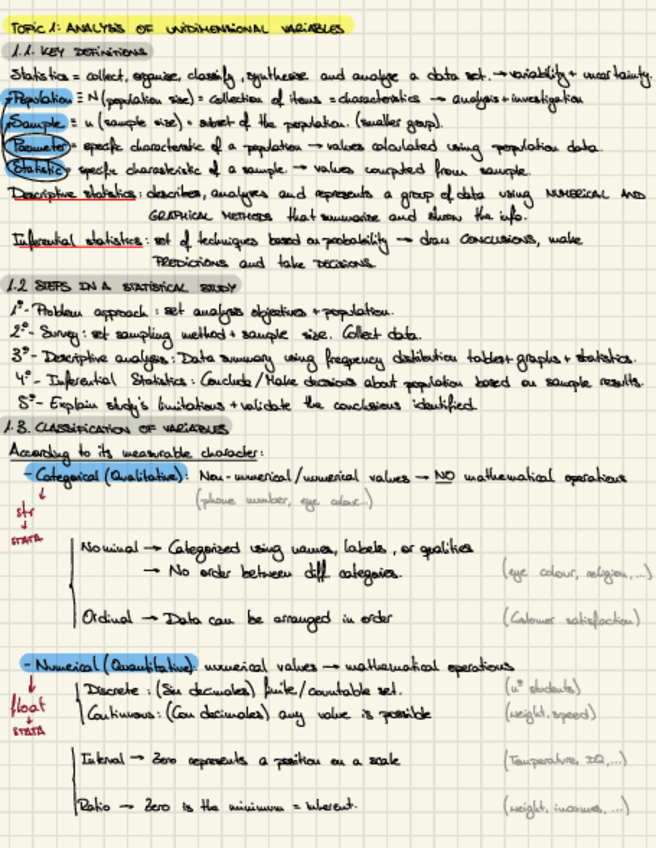 TOPIC 1: ANALYSIS OF UNIDIMENSIONAL VARIABLES
1.1. KEY DEFINITIONS
Statistics = collect, organise, classify, synthesise and analyse a data set. → variability + uncertainty.
Population ≡ N (population size) = collection of items = characteristics → analysis + investigation
Sample = n (sample size) = subset of the population. (smaller group).
Parameter = specific characteristic of a population → values calculated using population data.
Statistic = specific characteristic of a sample. → values computed from sample.
Descriptive statistics: describes, analyses and represents a group of data using NUMERICAL AND
GRAPHICAL METHODS that summarise and show the info.
Inferential statistics: set of techniques based on probability → draw CONCLUSIONS, make
PREDICTIONS and take DECISIONS.
1.2 STEPS IN A STATISTICAL STUDY
1º- Problem approach: set analysis objectives + population.
2º- Survey: set sampling method + sample size. Collect data.
3º- Descriptive analysis: Data summary using frequency distribution tables + graphs + statistics.
4º- Inferential Statistics: Conclude/Make decisions about population based on sample results.
5º- Explain study's limitations + validate the conclusions identified
1.3. CLASSIFICATION OF VARIABLES
According to its measurable character:
- Categorical (Qualitative): Non-numerical/numerical values → NO mathematical operations
(phone number, eye colour...)
↓
str
↓
STATA
Nominal → Categorized using names, labels, or qualities
→ No order between diff categories. (eye colour, religion,...)
Ordinal → Data can be arranged in order (Customer satisfaction)
- Numerical (Quantitative): numerical values → mathematical operations
↓
float
↓
STATA
Discrete: (Sin decimales) finite/countable set. (nº students)
Continuous: (Con decimales) any value is possible (weight, speed)
Interval → Zero represents a position on a scale (Temperature, IQ,...)
Ratio → Zero is the minimum = inherent. (weight, incomes,...)